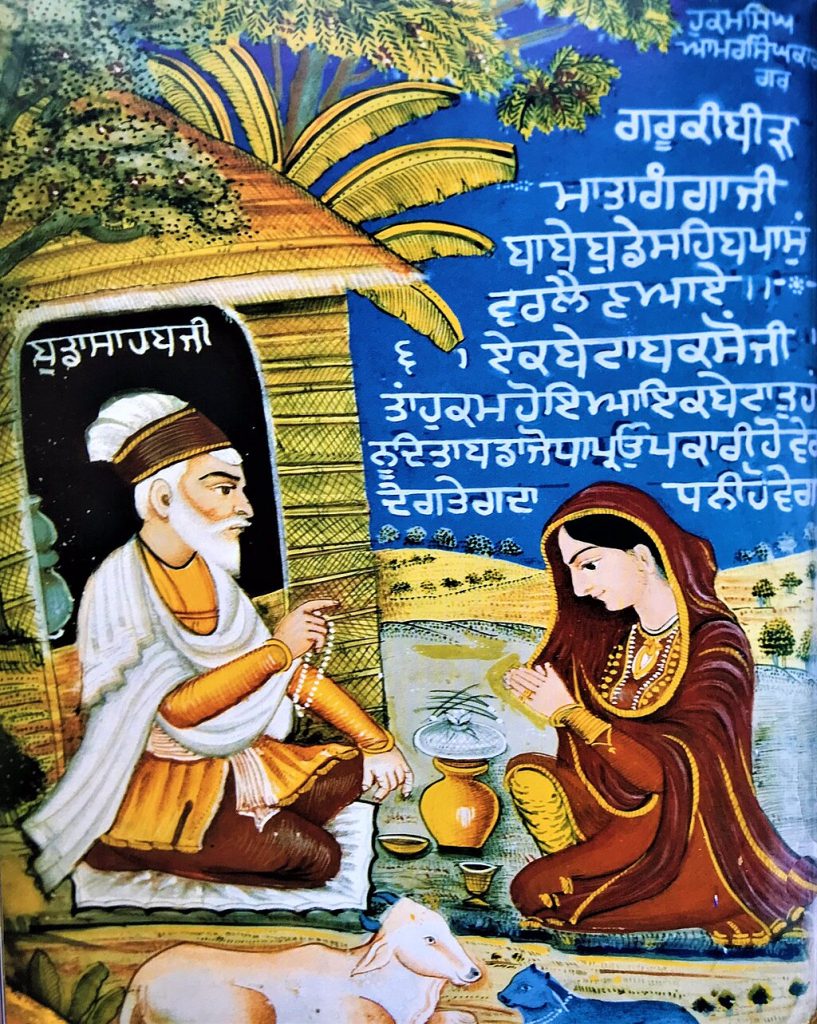 ਹੁਕਮਸਿੰਘ
ਆਮਰਸਿੰਘਕਾਰ
ਗਰ
ਗਰੂਕੀਬੀੜ
ਮਾਤਾਗੰਗਾਜੀ
ਬਾਬੇਬੁਡੇਸਹਿਬਪਾਸੁੰ
ਵਰਲੈਣਆਏ॥
ਬੁਡਾਸਾਹਬਜੀ
੬ ੧ ਏਕਬੇਟਾਬਕਸੋਜੀ
ਤਾਂਹੁਕਮਹੋਇਆਇਕਬੇਟਾਤੁਹਾ
ਨੂਦਿਤਾਬਡਾਜੋਧਾਪ੍ਰਉਪਕਾਰੀਹੋਵੇਗ
ਦੇਗਤੇਗਦਾ ਧਨੀਹੋਵੇਗਾ